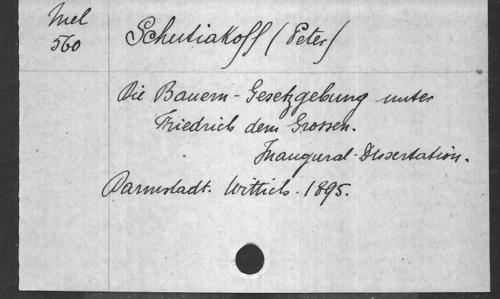 Mel
560
Schutiakoff (Peter)
Die Bauern-Gesetzgebung unter
Friedrich dem Grossen.
Inaugural-Dissertation.
Darmstadt. Wittich. 1895.